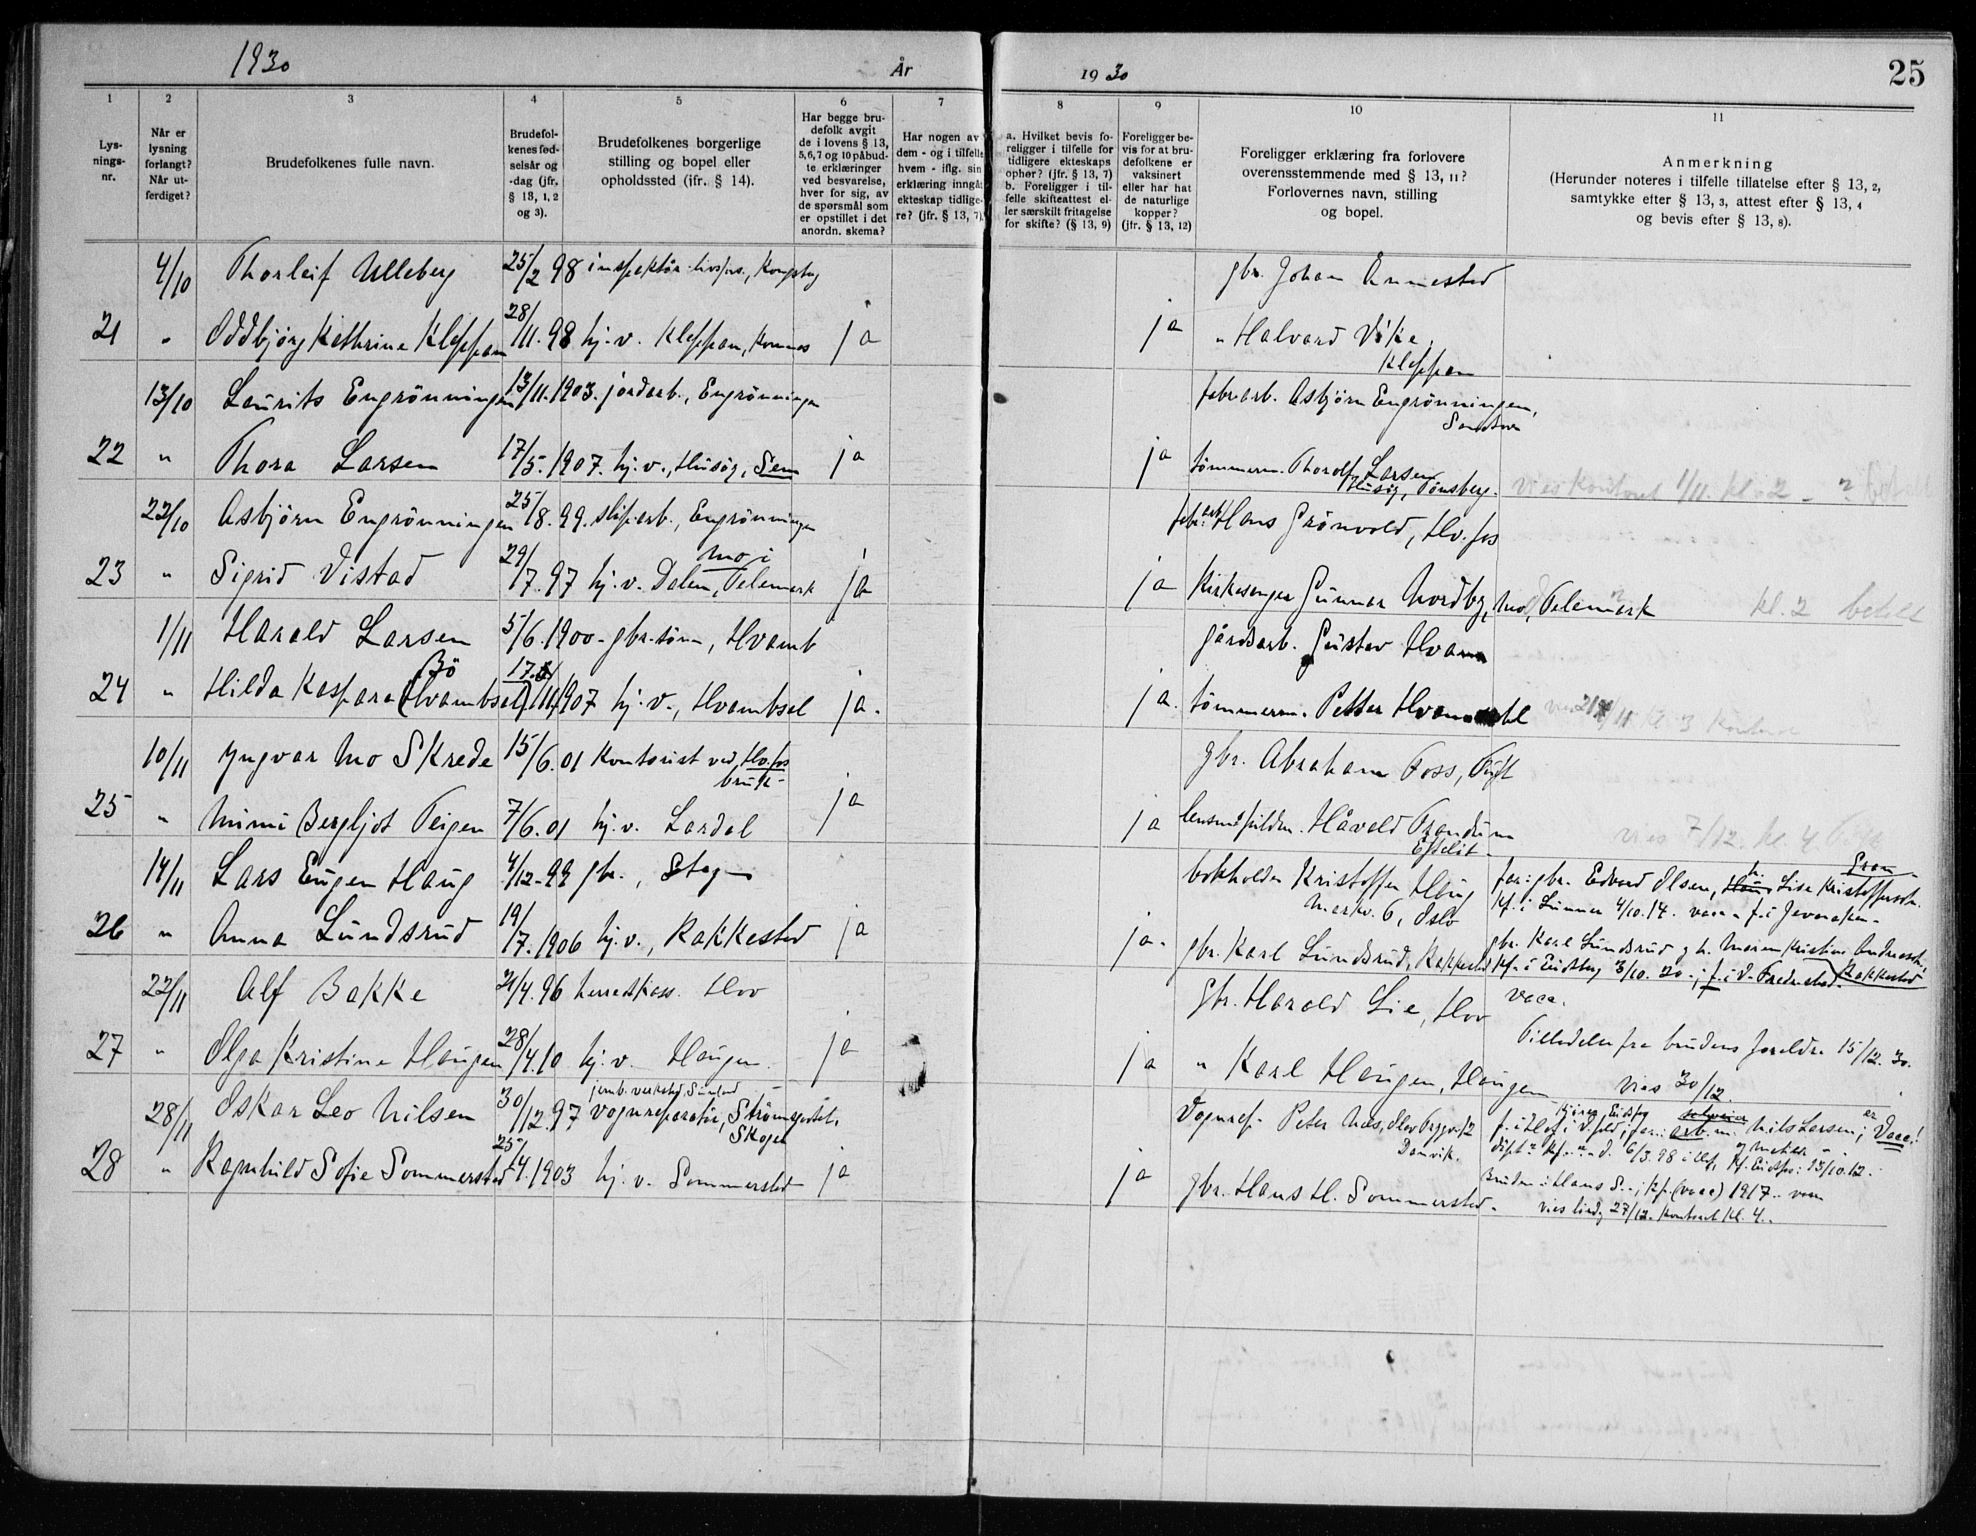 1930
År
1930
25
1
2
3
4
5
6
7
8
9
10
11
Lys-
nings-
nr.
Når er
lysning
forlangt?
Når ut-
ferdiget?
Brudefolkenes fulle navn.
Brudefol-
kenes fød-
selsår og
-dag (jfr.
§ 13, 1, 2
og 3).
Brudefolkenes borgerlige
stilling og bopel eller
opholdssted (ifr. § 14).
Har begge bru-
defolk avgit
de i lovens § 13,
5, 6, 7 og 10 påbud-
te erklæringer
ved besvarelse,
hver for sig, av
de spørsmål som
er opstillet i det
anordn. skema?
Har nogen av
dem - og i tilfelle
hvem - iflg. sin
erklæring inngåt
ekteskap tidlige-
re? (jfr. § 13, 7).
a. Hvilket bevis fo-
religger i tilfelle for
tidligere ekteskaps
ophør? (jfr. § 13, 7)
b. Foreligger i til-
felle skifteattest el-
ler særskilt fritagelse
for skifte? (§ 13, 9)
Foreligger be-
vis for at bru-
defolkene er
vaksinert
eller har hat
de naturlige
kopper?
(jfr. § 13, 12)
Foreligger erklæring fra forlovere
overensstemmende med § 13, 11?
Forlovernes navn, stilling
og bopel.
Anmerkning
(Herunder noteres i tilfelle tillatelse efter § 13, 2,
samtykke efter § 13, 3, attest efter § 13, 4
og bevis efter § 13, 8).
4/10 Thorleif Ulleberg 25/2 98 inspektör Kongsbg gbr. Johan Ånnestad
21 " Oddbjörg Kathrine Kleppan 28/11. 98 hj.v. Kleppan, Komnes ja ja " Halvard Vike
Kleppan
13/10 Laurits Engrönningen 13/11. 1903. jordarb., Engrönningen fabr.arb. Asbjörn Engrönningen,
22 " Thora Larsen 17/5. 1907. hj.v., Husöy, Sem ja ja tömmerm. Thorolf Larsen
Husöy, Tönsberg.
vies Kontoret 1/11. kl. 2
22/10 Asbjörn Engrönningen 25/8. 99. slip.arb., Engrönningen fabr.arb. Hans Grönvold, Hv.fos
23 " Sigrid Vistad 29/7. 97 hj.v. Dalen, Mo i Telemark ja ja Kirkesanger Gunnar Nordby, Mo, Telemark kl. 2 betalt
1/11 Harald Larsen 5/6. 1900 - gbr.sönn, Hvamb gårdsarb. Gustav Hvam
24 " Hilda Kaspara Bö (Hvambsel) 17/11. 1907 hj.v., Hvambsel ja. ja. tömmerm. Petter Hvambsel kl. 3 Kontoret
10/11 Yngvar Mo Skrede 15/6. 01 Kontorist ved Hv.fos
bruk - gbr. Abraham Foss,
25 " Mimi Bergljot Teigen 7/6. 01 hj.v. Lardal ja ja lensm.fuldm. Håvald Trandum
Efteløt
vies 7/12. kl. 4
14/11 Lars Eugen Haug 4/12. 99 gbr., bokholder Kristoffer Haug
Markv. 6, Oslo
far: gbr. Edvard Olsen, h. Lise Kristoffersdtr. Gran
kf. i Lunner 4/10.14. vacc. f. i Jevnaker.
26 " Anna Lundsrud 19/7. 1906 hj.v., Rakkestad ja ja. gbr. Karl Lundsrud, Rakkestad
gbr. Karl Lundsrud g h. Maren Kristine Andreasdtr.
kf. i Eidsberg 3/10. 20.; f. i Fredrikstad. Rakkestad
vacc.
22/11 Alf Bakke 21/4. 96 herredskass. Hov gbr. Harald Lie, Hov
27 " Olga Kristine Haugen 28/4. 10 hj.v. Haugen. ja ja " Karl Haugen, Haugen
Tilladelse fra brudens foreldre 15/12. 30.
vies 30/12.
28/11 Oskar Leo Nilsen 30/12. 97 jernb. verksted Sundland
vognreparatör, Strömsgodset,
Skoger
Vognrep. Peter Næs,
Danvik.
arb. Nils Larsen; er Vacc!
kf. 13/10.12.
28 " Ragnhild Sofie Sommerstad 25/4. 1903 hj.v. Sommerstad ja ja gbr. Hans H. Sommerstad.
Bruden: Hans S. ; kf. (vacc) 1917.
vies lörd. 27/12. Kontoret kl. 4.